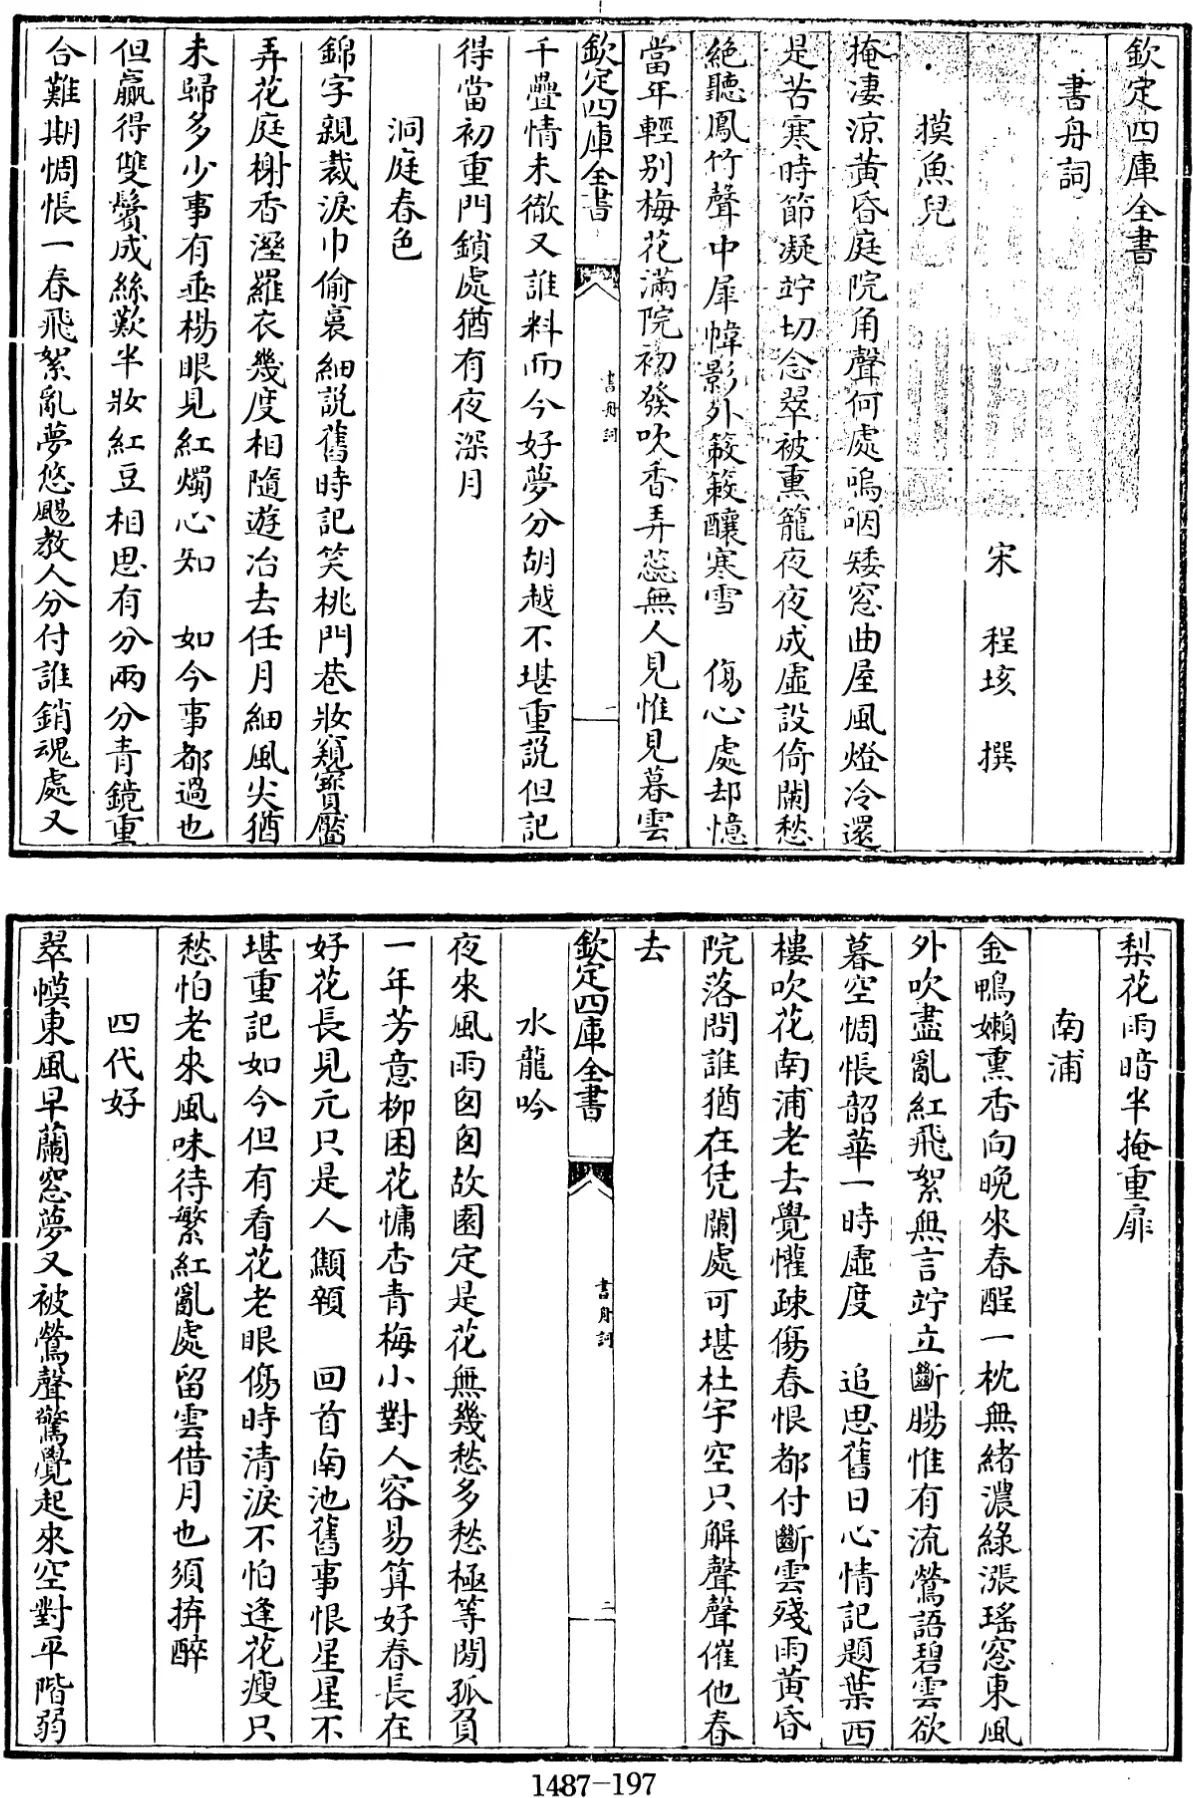 欽定四庫全書
書舟詞
宋　程垓　撰
摸魚兒
掩凄涼黃昏庭院角聲何處嗚咽矮窓曲屋風燈冷還
是苦寒時節凝竚切念翠被熏籠夜夜成虛設倚闌愁
絶聽鳳竹聲中犀幃影外簌簌釀寒雪　傷心處却憶
當年輕別梅花滿院初發吹香弄蕊無人見惟見暮雲
欽定四庫全書　書舟詞　一
千疊情未徹又誰料而今好夢分胡越不堪重説但記
得當初重門鎖處猶有夜深月
洞庭春色
錦字親裁淚巾偷裛細説舊時記笑桃門巷妝窺寳靨
弄花庭榭香溼羅衣幾度相隨遊冶去任月細風尖猶
未歸多少事有垂楊眼見紅燭心知　如今事都過也
但贏得雙鬢成絲歎半妝紅豆相思有分兩分青鏡重
合難期惆悵一春飛絮亂夢悠颺教人分付誰銷魂處又
梨花雨暗半掩重扉
南浦
金鴨嬾熏香向晚來春酲一枕無緒濃綠漲瑤窓東風
外吹盡亂紅飛絮無言竚立斷腸惟有流鶯語碧雲欲
暮空惆悵韶華一時虛度　追思舊日心情記題葉西
樓吹花南浦老去覺懽疎傷春恨都付斷雲殘雨黃昏
院落問誰猶在凭闌處可堪杜宇空只解聲聲催他春
去
欽定四庫全書　書舟詞　二
水龍吟
夜來風雨匆匆故園定是花無幾愁多愁極等閒孤負
一年芳意柳困花慵杏青梅小對人容易算好春長在
好花長見元只是人顦顇　回首南池舊事恨星星不
堪重記如今但有看花老眼傷時清淚不怕逢花瘦只
愁怕老來風味待繁紅亂處留雲借月也須拚醉
四代好
翠幙東風早蘭窓夢又被鶯聲驚覺起來空對平階弱
1487-197